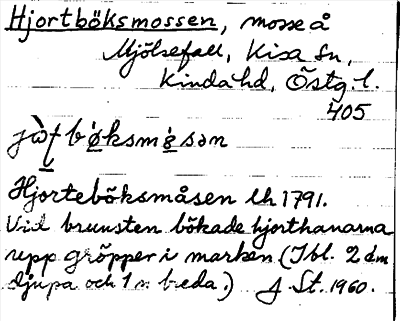 Hjortböksmossen, mosse å
Mjölsefall, Kisa sn,
Kinda hd, Östg. l.
405
jòt̠ bø̠ksmø̠sən
Hjorteböksmåsen lh 1791.
Vid brunsten bökade hjorthanarna
upp gröpper i marken (Ibl. 2 dm
djupa och 1 m breda.) J St. 1960.